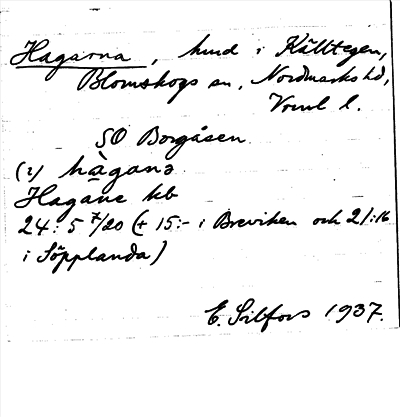 Hagarna, hmd i Källtegen,
Blomskogs sn, Nordmarks hd,
Vrml l.
SO Borgåsen
(2) hàgana
Hagane kb
24: 5 7/20 (+ 15:- i Breviken och 21:16
i Söpplanda)
E. Silfors 1937.